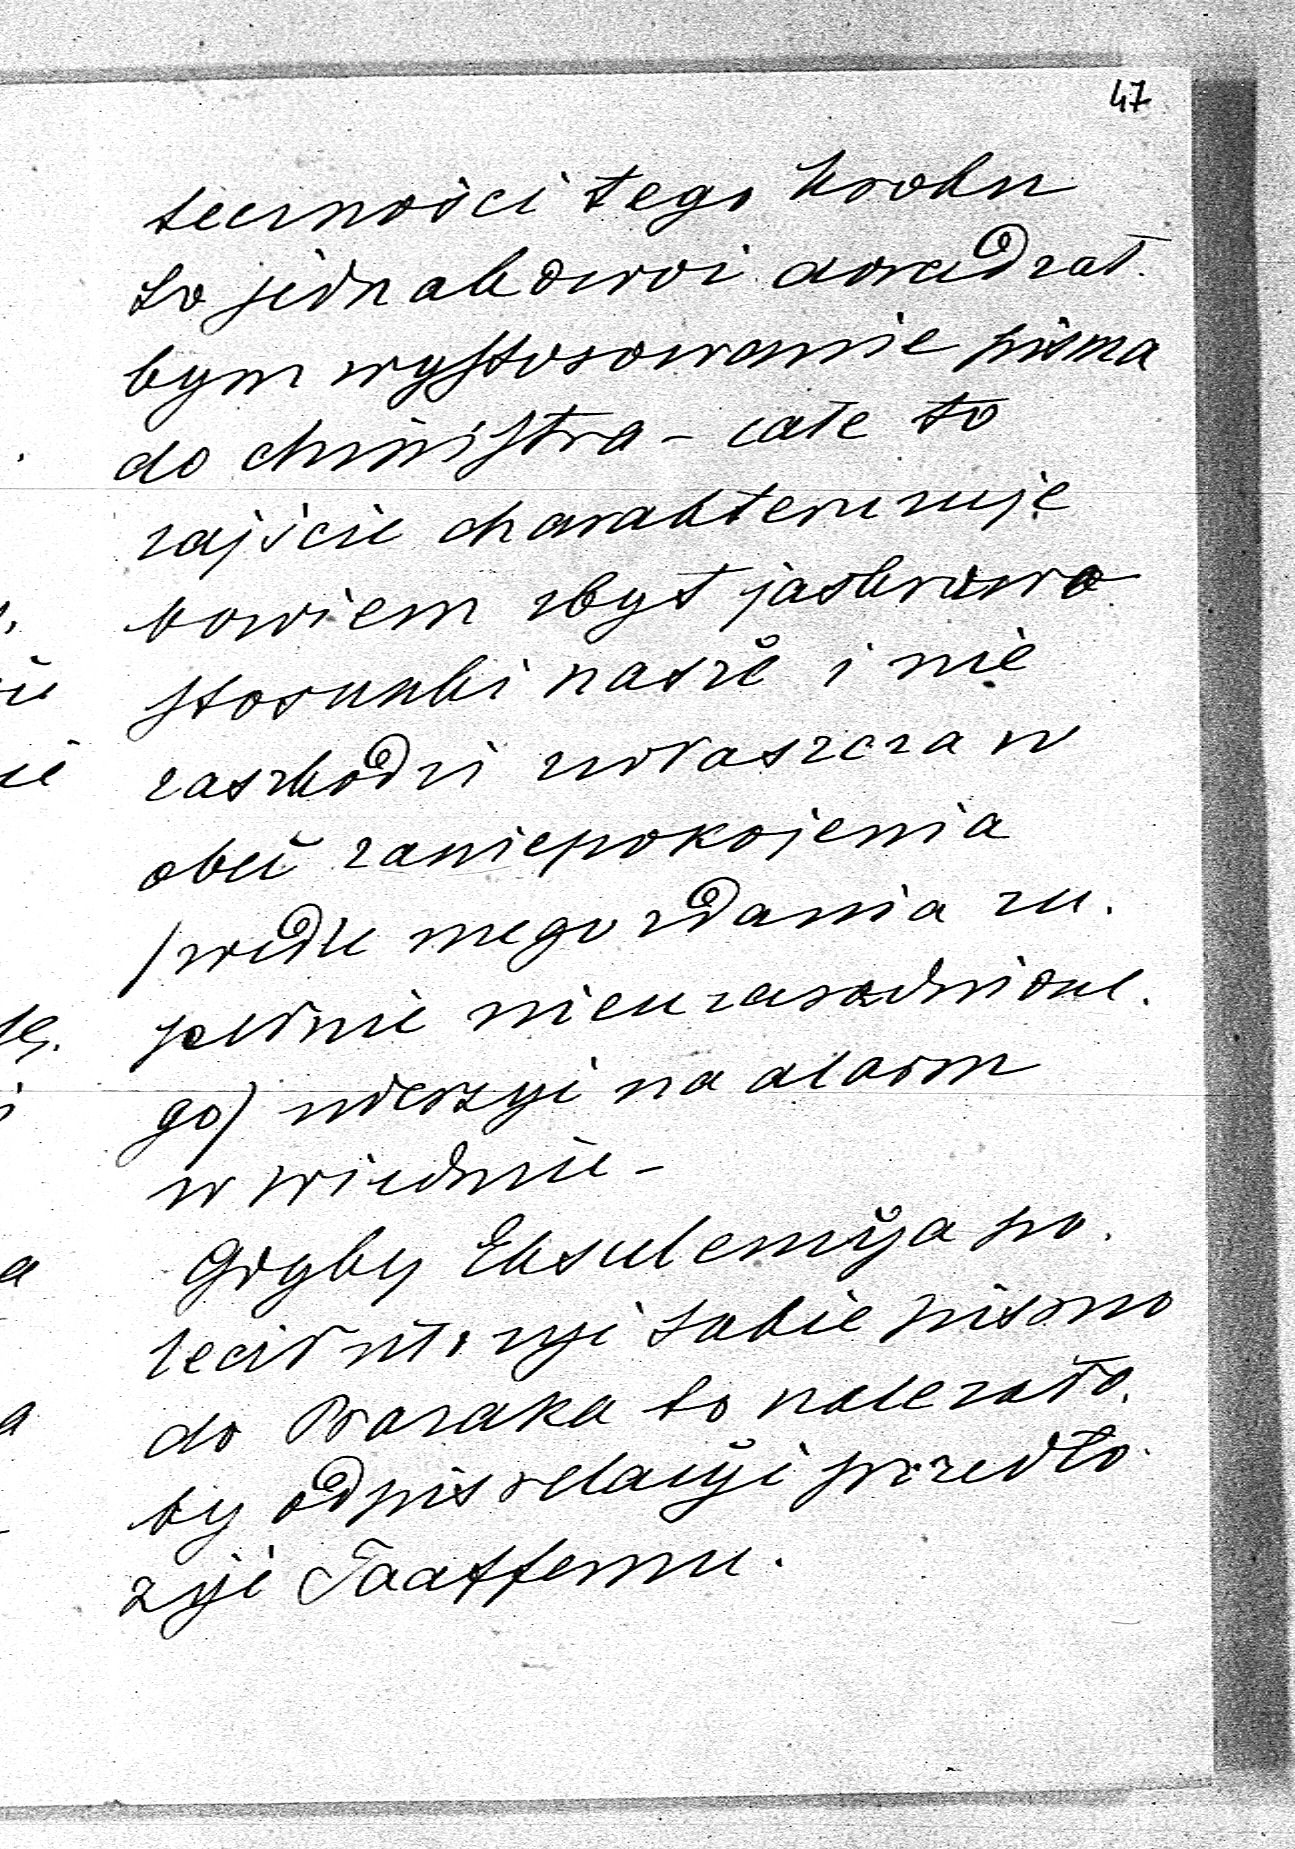 47
teczności tego kroku
to jednakowoż doradzał
bym wystosowanie pisma
do Ministra – całe to
zajście charakteryzuje
bowiem zbyt jaskrawo
stosunki nasze i nie
zaszkodzi zwłaszcza w
obec zaniepokojenia
/wedle mego zdania zu.
pełnie nieuzasadnione.
go/ uderzyć na alarm
w Wiedniu –
Gdyby Ekscelencyja po.
lecił użyć takie pismo
do Prazaka to należało.
by odpis relacyi przedło.
żyć Taaffemu.